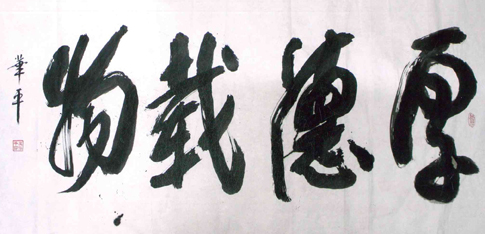 厚德載物
華平